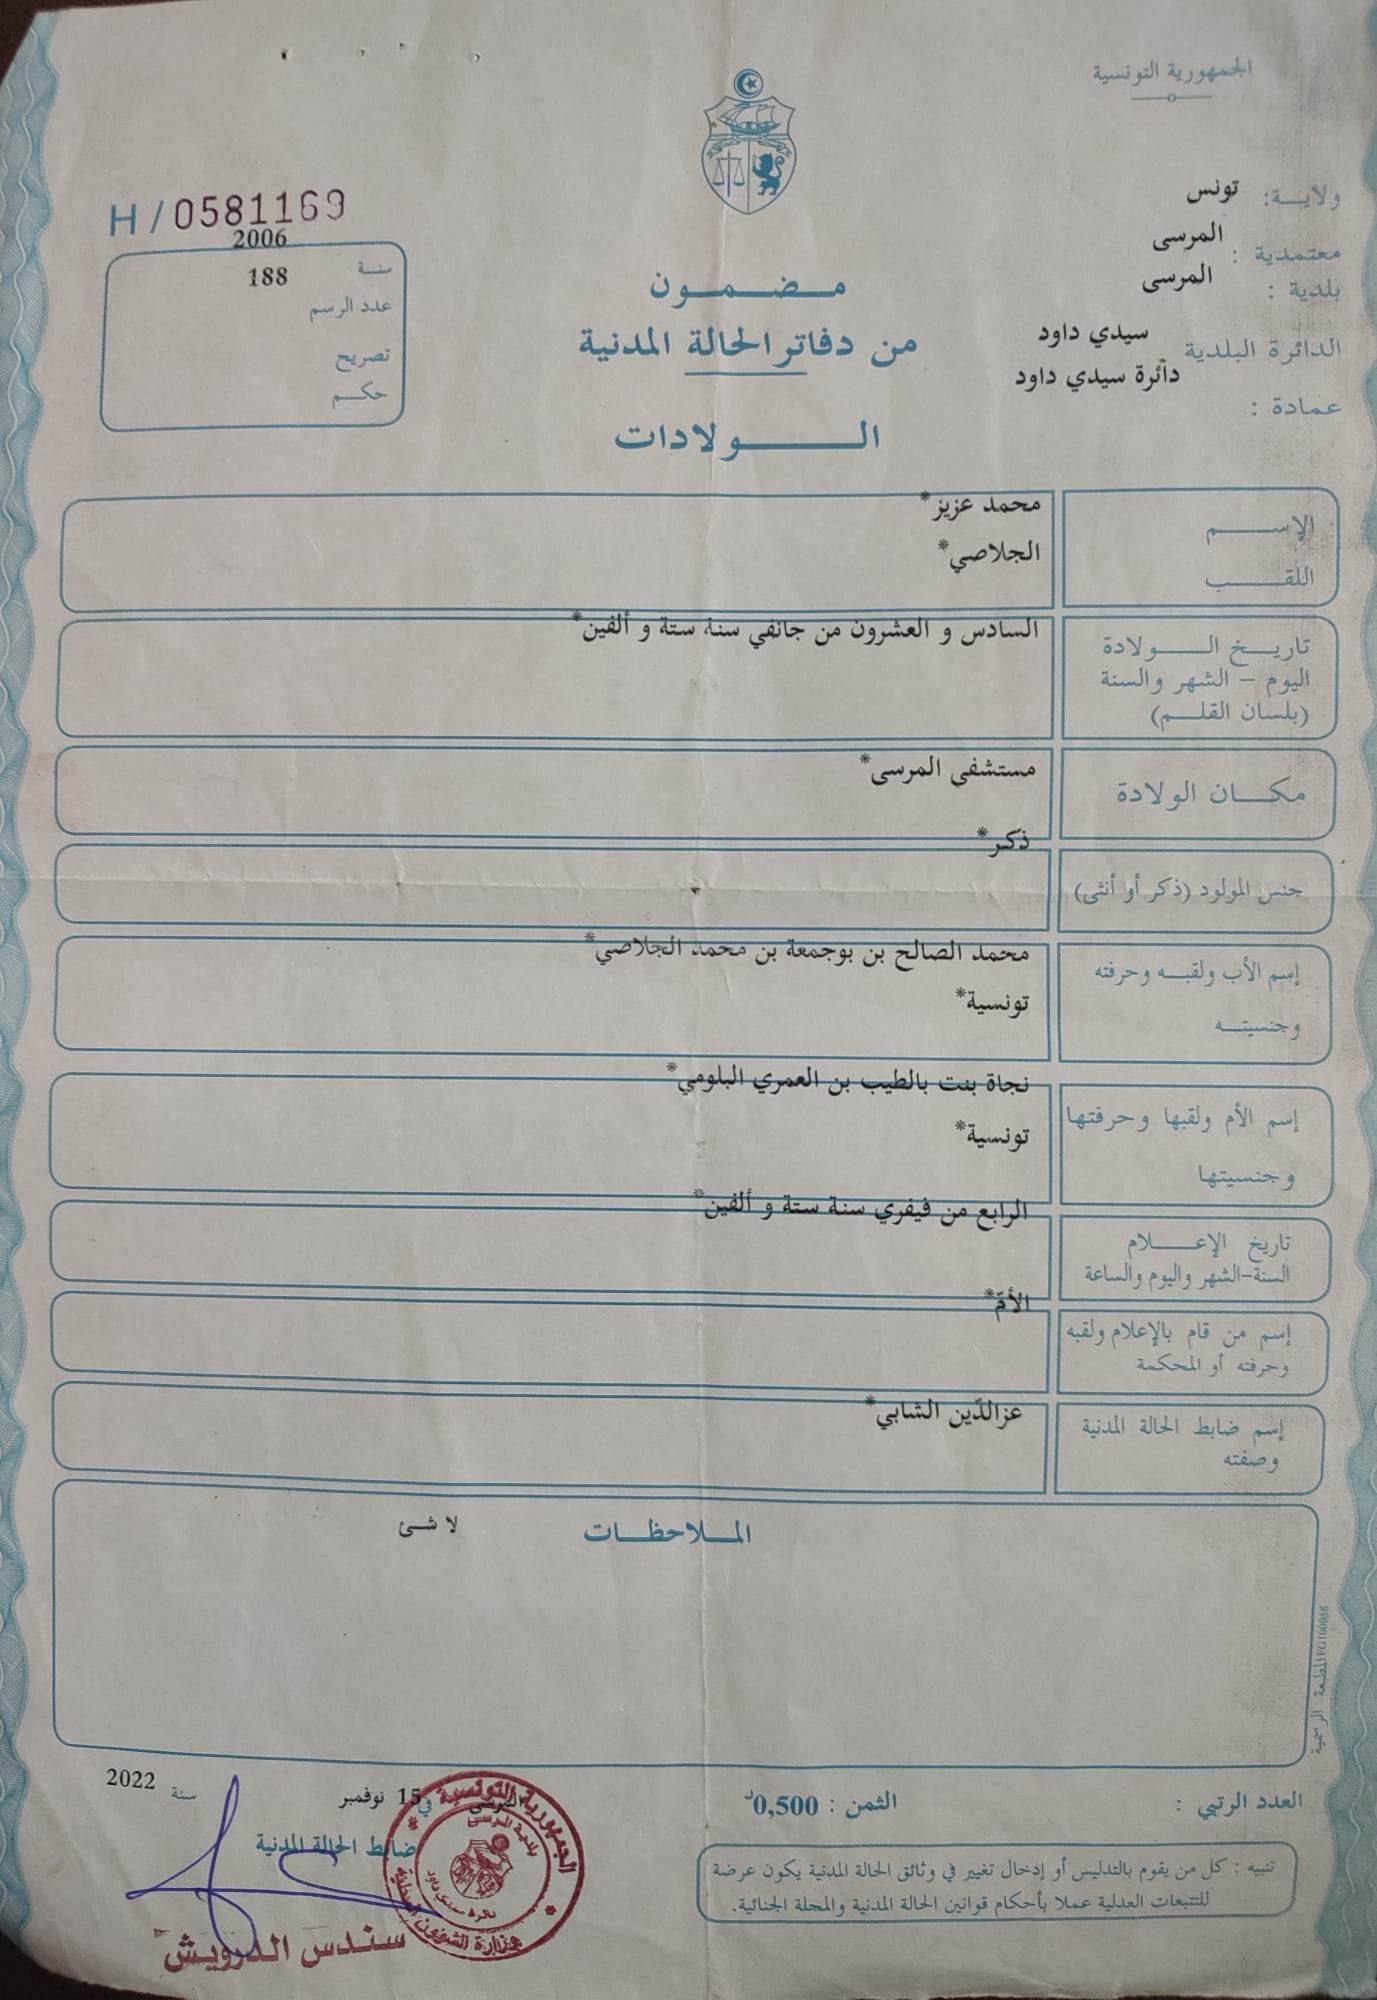 الجمهورية التونسية
ولايــة: تونس
معتمدية : المرسى
بلدية : المرسى
الدائرة البلدية : سيدي داود
عمادة : دائرة سيدي داود
H / 0581169
سنـة 2006
عدد الرسم 188
تصريح
حكــم
مـضـمـون
من دفاتر الحالة المدنية
الــولادات
الإســـم محمد عزيز*
اللقــب الجلاصي*
تاريــخ الــولادة السادس و العشرون من جانفي سنة ستة و ألفين*
اليوم – الشهر والسنة
(بلسان القلــم)
مكــان الولادة مستشفى المرسى*
جنس المولود (ذكر أو أنثى) ذكر*
إسم الأب ولقبــه وحرفته محمد الصالح بن بوجمعة بن محمد الجلاصي*
وجنسيتــه تونسية*
إسم الأم ولقبها وحرفتها نجاة بنت بالطيب بن العمري البلومي*
وجنسيتها تونسية*
تاريخ الإعــلام الرابع من فيفري سنة ستة و ألفين*
السنة-الشهر واليوم والساعة
إسم من قام بالإعلام ولقبه الأمّ*
وحرفته أو المحكمة
إسم ضابط الحالة المدنية عزالدّين الشابي*
وصفته
المــلاحظــات
لا شئ
المطبعة الرسمية FG110005B
العدد الرتبي :
الثمن : 0,500د
المرسى في 15 نوفمبر سنة 2022
ضابط الحالة المدنية
الجمهورية التونسية
وزارة الشؤون المحلية
بلدية المرسى
دائرة سيدي داود
سندس الدرويش
تنبيه : كل من يقوم بالتدليس أو إدخال تغيير في وثائق الحالة المدنية يكون عرضة
للتتبعات العدلية عملا بأحكام قوانين الحالة المدنية والمجلة الجنائية.